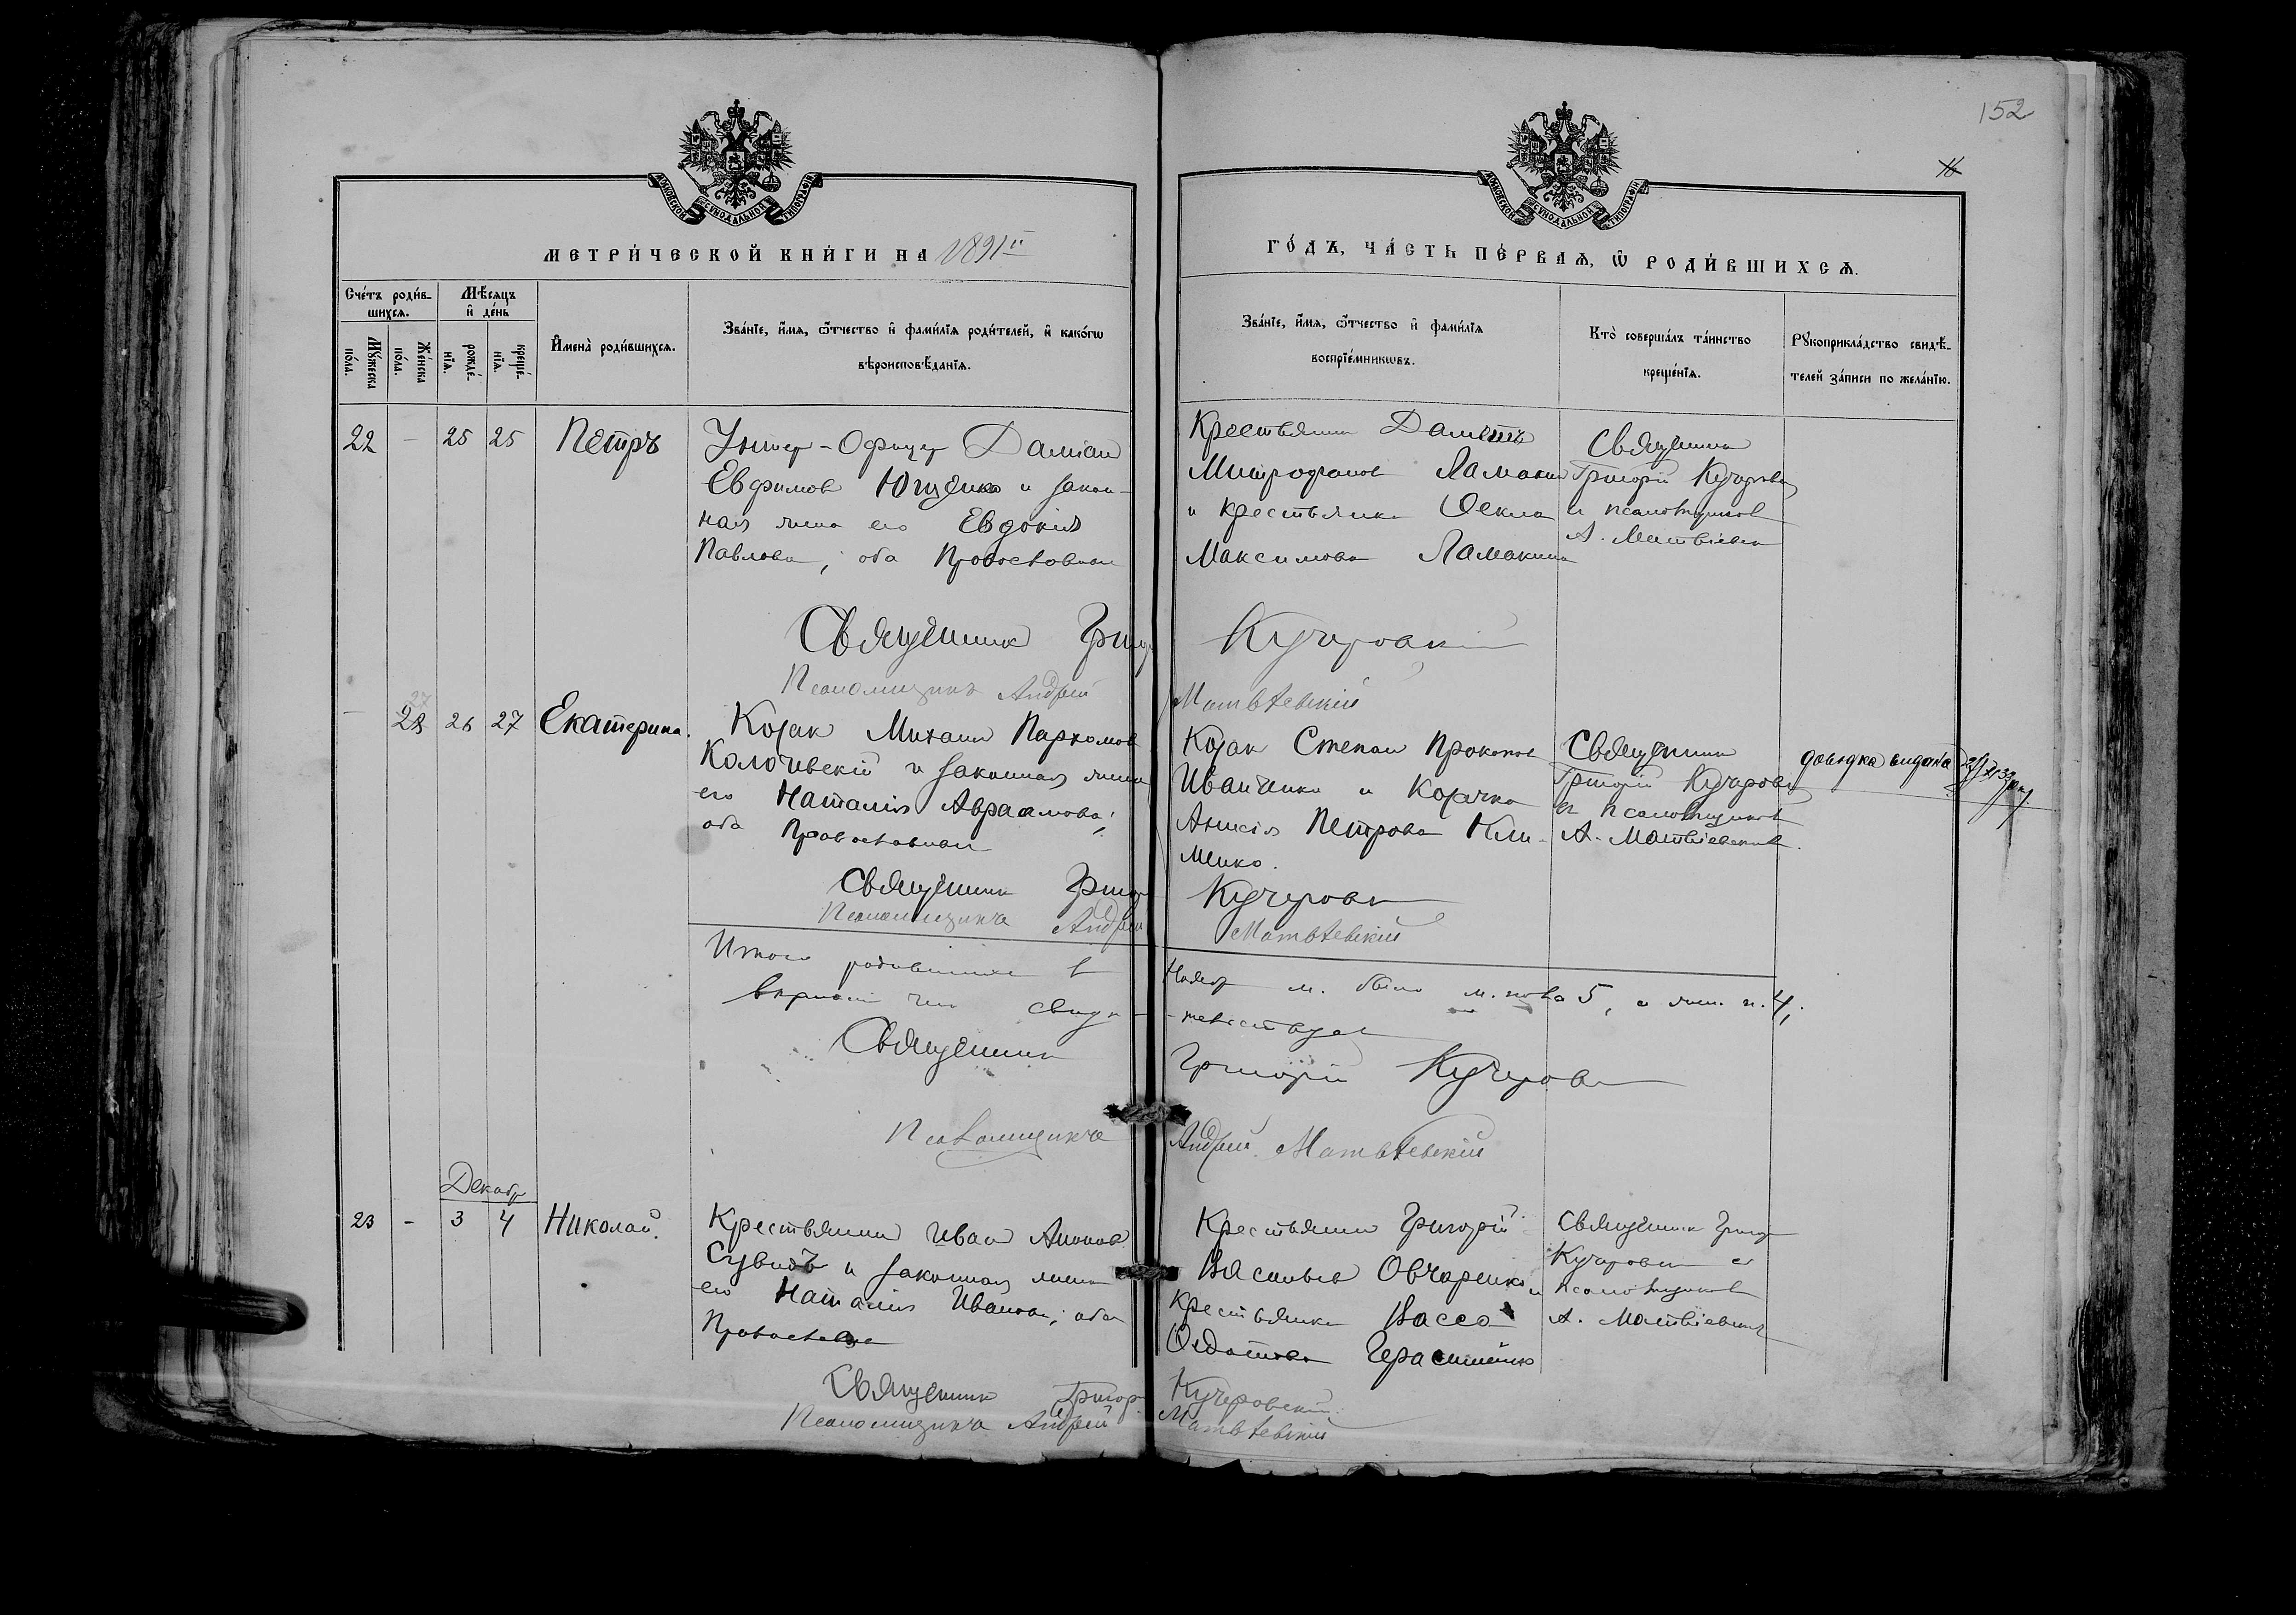 152
МОСКОВСКОЙ СѴНОДАЛЬНОЙ ТИПОГРАФІИ
МОСКОВСКОЙ СѴНОДАЛЬНОЙ ТИПОГРАФІИ
МЕТРИ́ЧЕСКОЙ КНИ́ГИ НА 1891й
ГО́ДЪ, ЧА́СТЬ ПЕ́РВАѦ, Ѡ҆ РОДИ́ВШИХСѦ.
Сче́тъ роди́в-
шихсѧ.
Мꙋ́жеска по́ла.
Же́нска по́ла.
Мѣ́сѧцъ
и҆ де́нь
рожде́-
нїѧ.
креще́-
нїѧ.
И҆мена̀ роди́вшихсѧ.
Зва́нїе, и҆́мѧ, ѻ҆́тчество и҆ фами́лїѧ роди́телей, и҆ како́гѡ
вѣроисповѣ́данїѧ.
Зва́нїе, и҆́мѧ, ѻ҆́тчество и҆ фами́лїѧ
воспрїе́мникѡвъ.
Кто̀ соверша́лъ та́инство
креще́нїѧ.
Рꙋкоприкла́дство свидѣ́-
телей за́писи по жела́нїю.
22 - 25 25 Петръ
Унтер-Офицер Даміан
Евфимов Ющенко и закон-
ная жена его Евдокія
Павлова; оба Православн
Крестьянин
Митрофанов Ламакин
и крестьянка Ѳекла
Максимова Ламакина
Священник
Григорій Кучеровск
с псаломщиком
А. Матвіевск
Священник Григор Кучеровскій
Псаломщикъ Андрей Матвѣевскій
- 27 26 27 Екатерина.
Козак Михаил Пархомов
и законная жена
его Наталія Авраамова;
оба Православные
Козак Степан Прокопов
Иванченко и Козачка
Анисія Петрова Кли-
менко.
Священник
Григорій Кучеровск
с псаломщиком
А. Матвіевским.
довідка видана
Священник Григор Кучеровск
Псаломщикъ Андрей Матвѣевскій
Итого родившихся в Ноябр м. было м. пола 5, а жен. п. 4,
в верности чего свидѣ-тельствует
Священник Григорій Кучеровск
Псаломщикъ Андрей Матвѣевскій
Декабр
23 - 3 4 Николай.
Крестьянин Иван
и законная жена
его Наталія Иванова; оба
Православн
Крестьянин Григорій
Васильев Овчаренко и
крестьянка Васса
Ѳедотова Герасименко
Священник Григор
Кучеровск с
псаломщиком
А. Матвіевским
Священник Григор Кучеровскій
Псаломщикъ Андрей Матвѣевскій